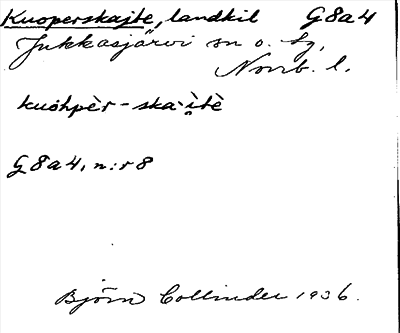 Kuoperskajte, landkil G8a4
Jukkasjärvi sn o. tg,
Norrb. l.
kuohpèr-ska-ìtè
G8a4, n:r 8
Björn Collinder 1936.